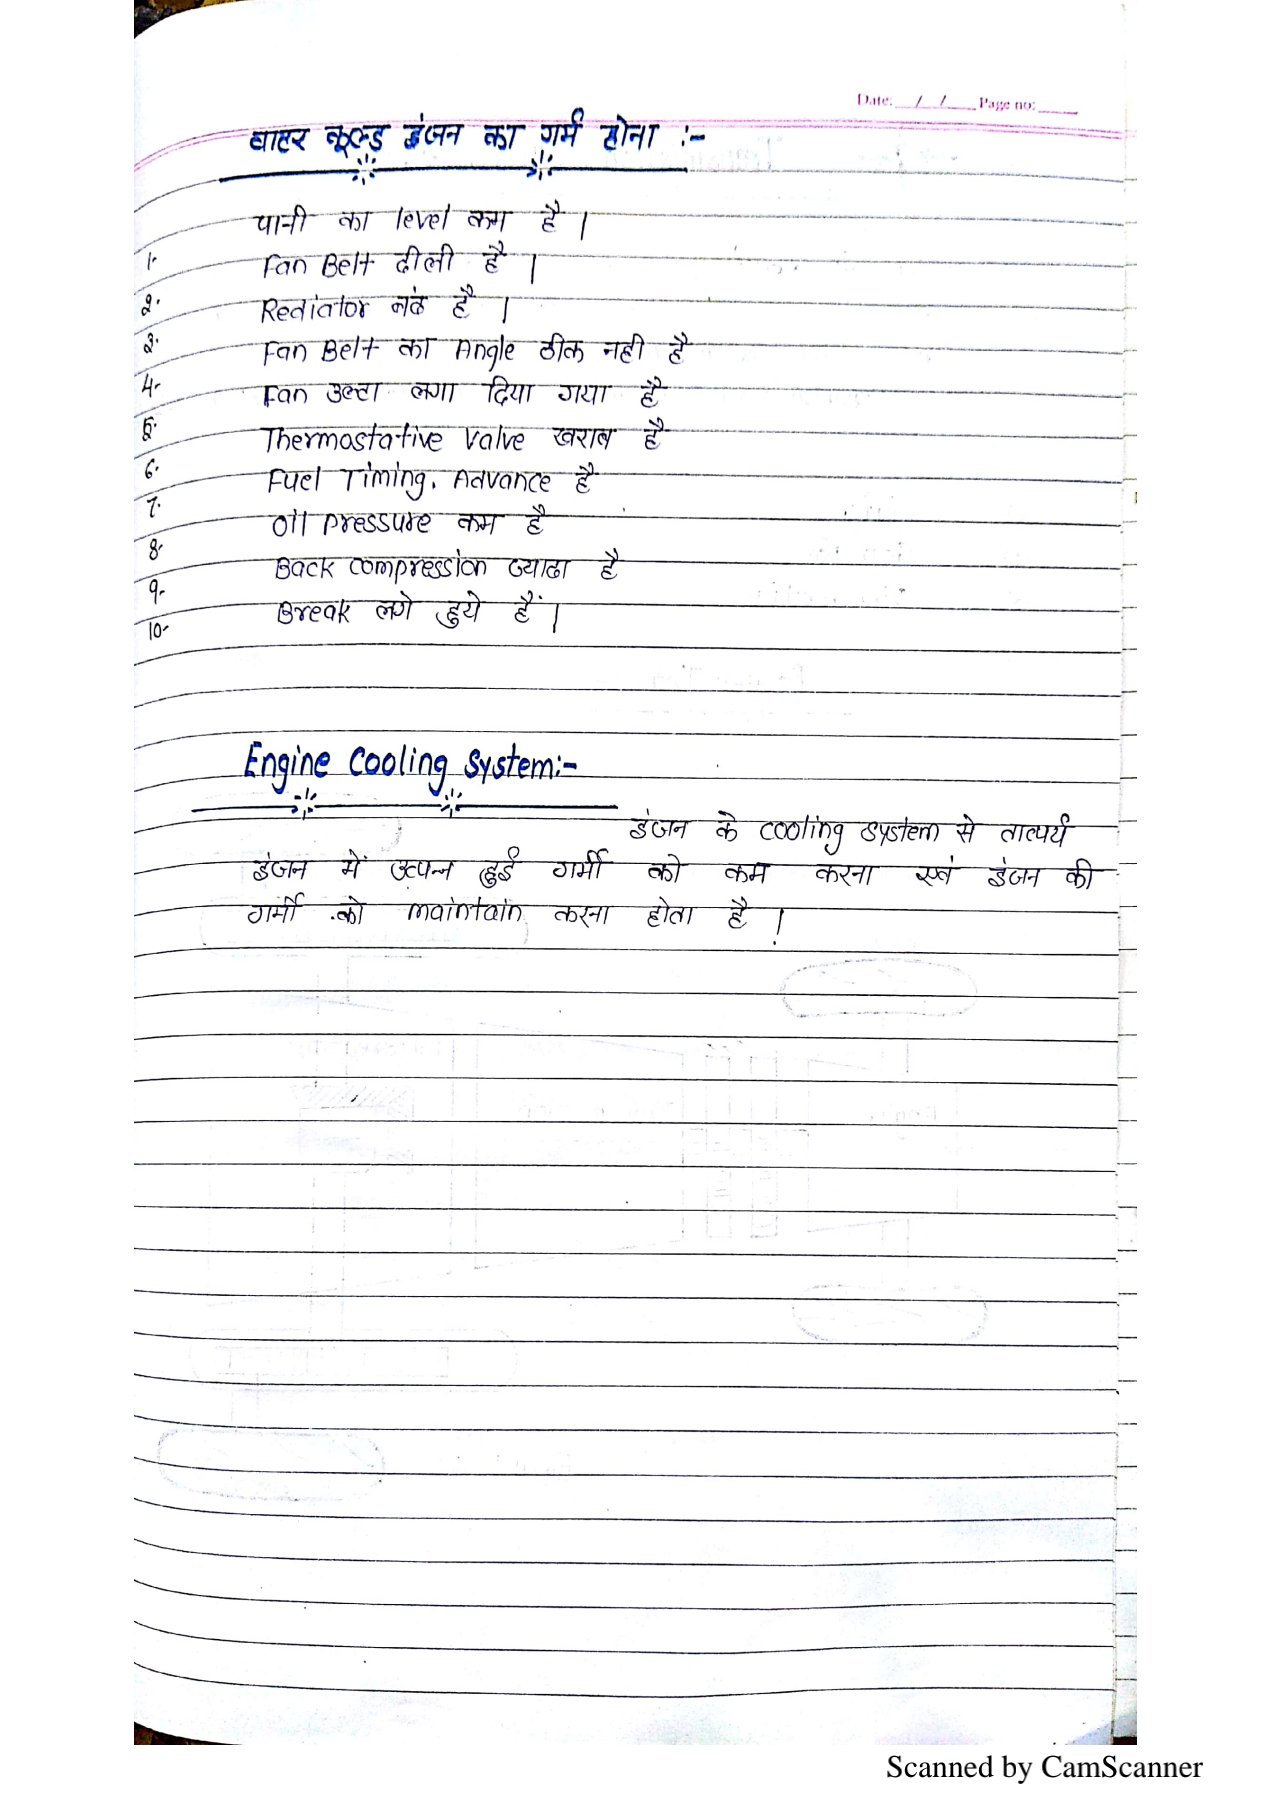 Date: __/__/__ Page no: ____
वाटर कूल्ड इंजन का गर्म होना :-
1. पानी का level कम है ।
2. Fan Belt ढीली है ।
3. Rediator बंद है ।
4. Fan Belt का Angle ठीक नही है
5. Fan उल्टा लगा दिया गया है
6. Thermostative valve खराब है
7. Fuel Timing. Advance है
8. Oil pressure कम है
9. Back compression ज्यादा है
10. Break लगे हुये हैं ।
Engine Cooling System:-
इंजन के cooling system से तात्पर्य
इंजन में उत्पन्न हुई गर्मी को कम करना एवं इंजन की
गर्मी को maintain करना होता है ।
Scanned by CamScanner